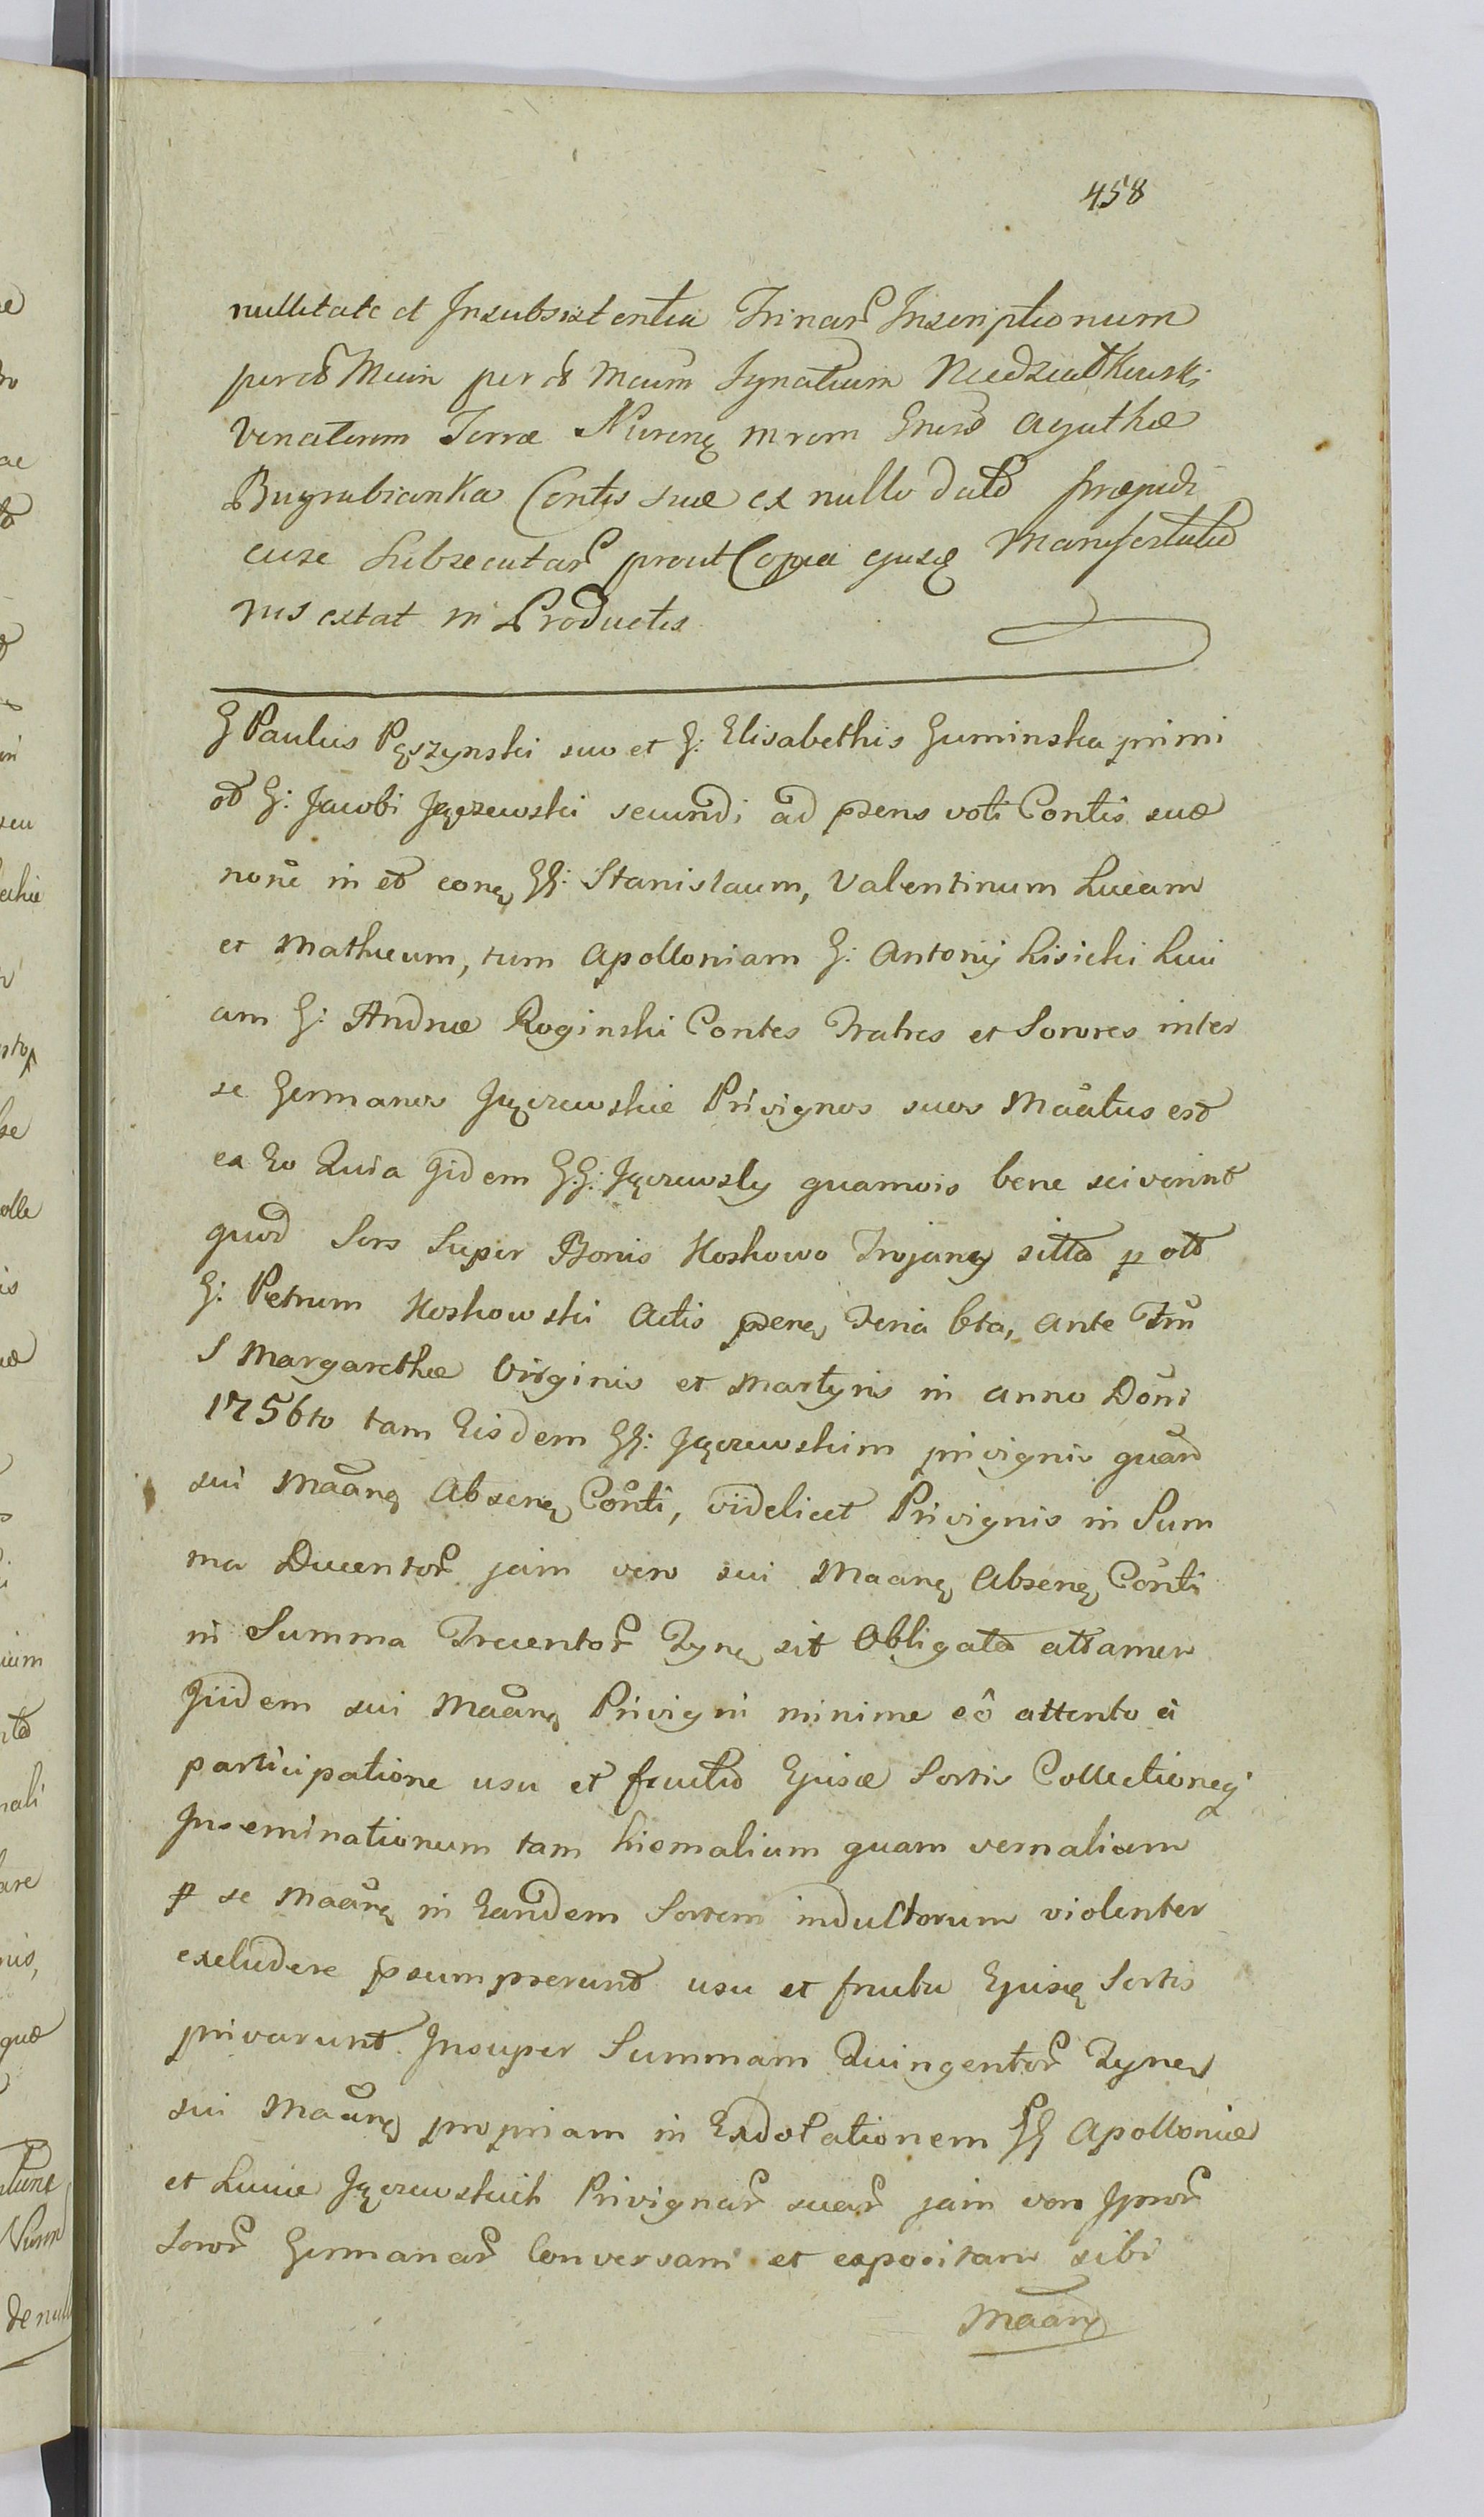 458
nullitate et Insubsistentia Trinar Inscriptionum
per Mcum per Mcum Ignatium Niedziałkowski
Venatorem Terræ Nurens mrem Gnersæ Agathæ
Bugrabianka Contis suæ ex nullo dato præpidi
cuse subsecutar prout Copia ejusq Manifestatio
nis extat in Productis
G Paulus Pęszynski suo et G: Elisabethis Guminska primi
ob G: Jacobi Jęczewski secundi ad psens voti Contis suæ
noīe in et conq GG: Stanislaum, Valentinum Lucam
et Mathæum, tum Apolloniam G: Antonij Lisicki Luci
am G: Andreæ Roginski Contes Fratres et Sorores inter
se Germanos Jęczewskie Privignos suos Maãtus est
ex Eo Quia Iidem GG: Jęczewscy quamvis bene sciverint
quod Sors Super Bonis Koskowo Trojany sitta p olt
G: Petrum Koskowski Actis psenq Feria 6ta, ante Ftū
S Margarethæ Virginis et Martyris in anno Doni
1756to tam Eisdem GG: Jęczewskim privignis quam
sui Maãnq Absenq Conti, videlicet Privignis in Sum
ma Ducentor jam vero sui Maanq Absenq Conti
in Summa Trecentor Tynq sit Obligata attamen
Iiidem sui Maãnq Privigni minime eô attento à
participatione usu et fructuo Ejusæ Sortis Collectioneq
Inseminationum tam hiemalium quam vernalium
p se Maãnq in Eandem Sortem inductorum violenter
excludere psumpserunt usu et fructu Ejusq Sortis
privarunt. Insuper Summam Quingentor Tynes
sui Maãnq propriam in Exdotationem GG Apolloniæ
et Luciæ Jęczewskich Privignar suar jam vero Ipsor
Soror Germanar Conversam et expositam sibi
Maanq